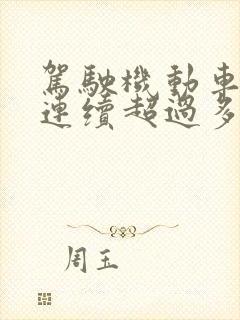 駕駛機動車
連續超過多
周玉